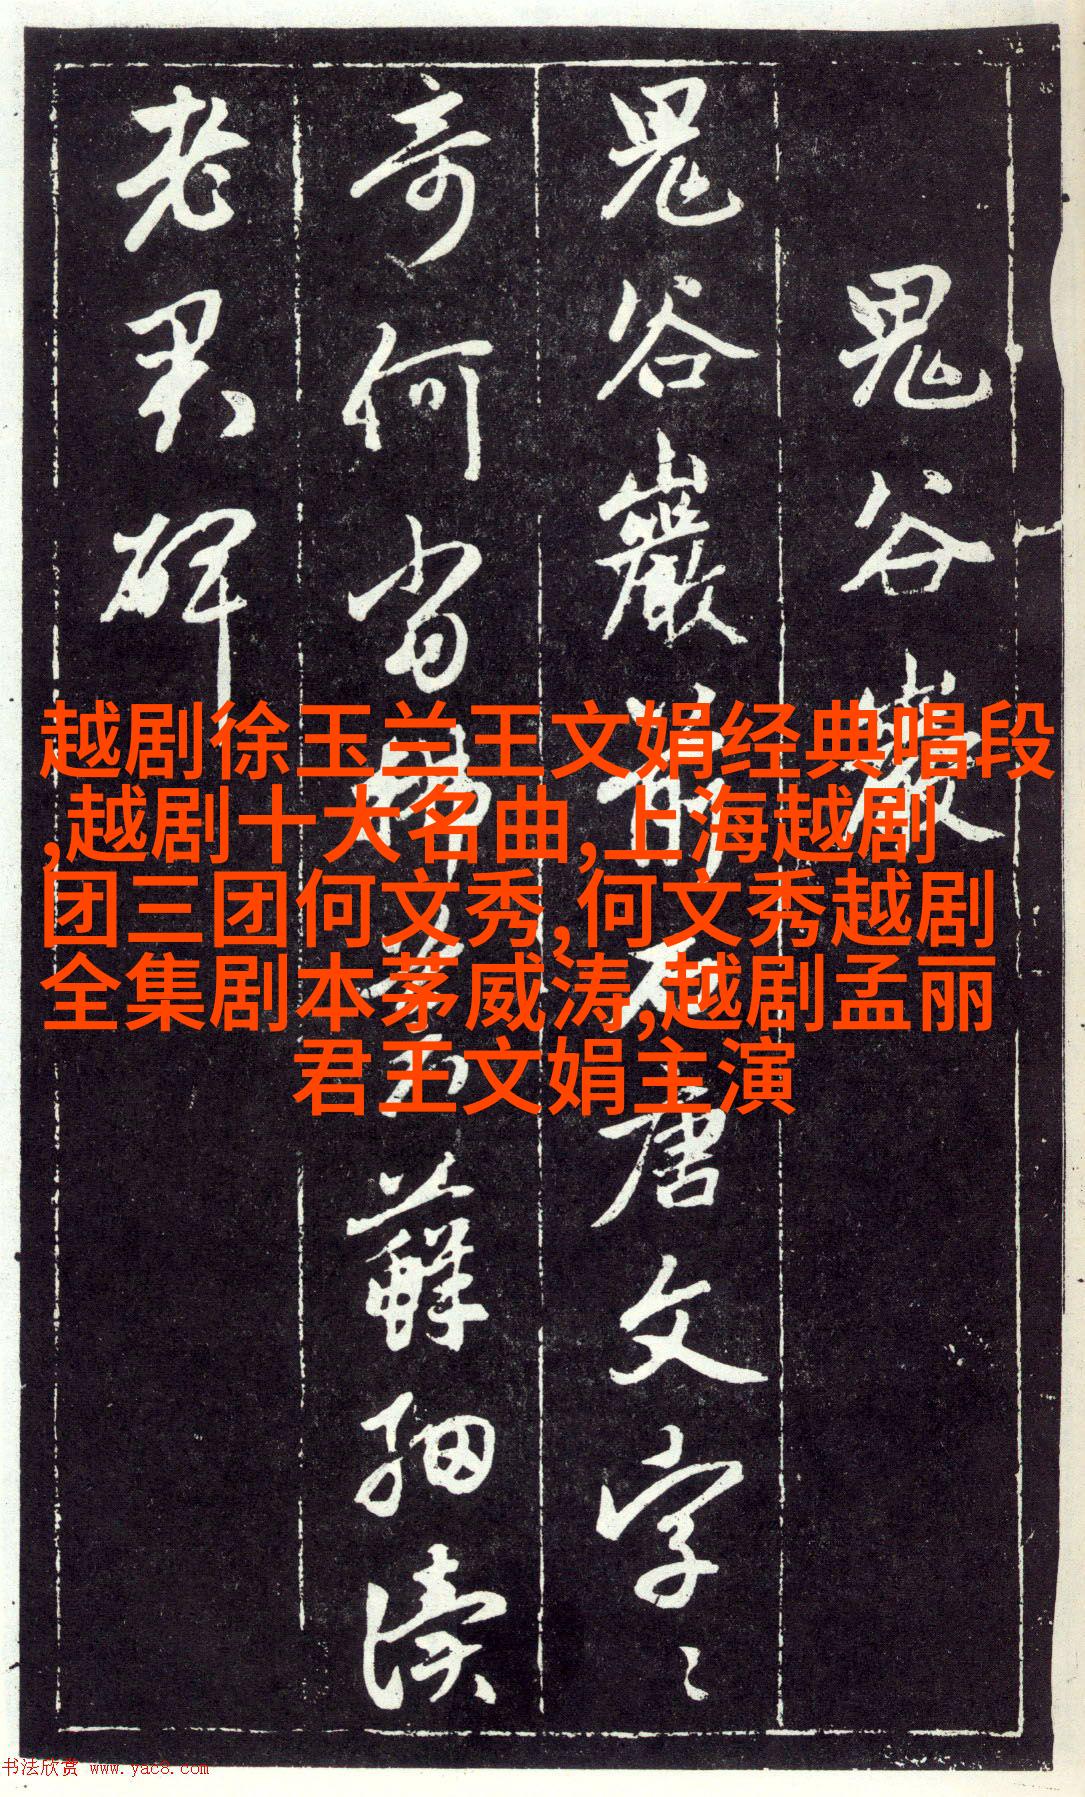 鬼谷巖
鬼谷巖前石唐文字〻
奇何當蘚細讀
老君碑
越剧徐玉兰王文娟经典唱段
,越剧十大名曲,上海越剧
团三团何文秀,何文秀越剧
全集剧本茅威涛,越剧孟丽
君王文娟主演
书法欣赏 www.yac8.com